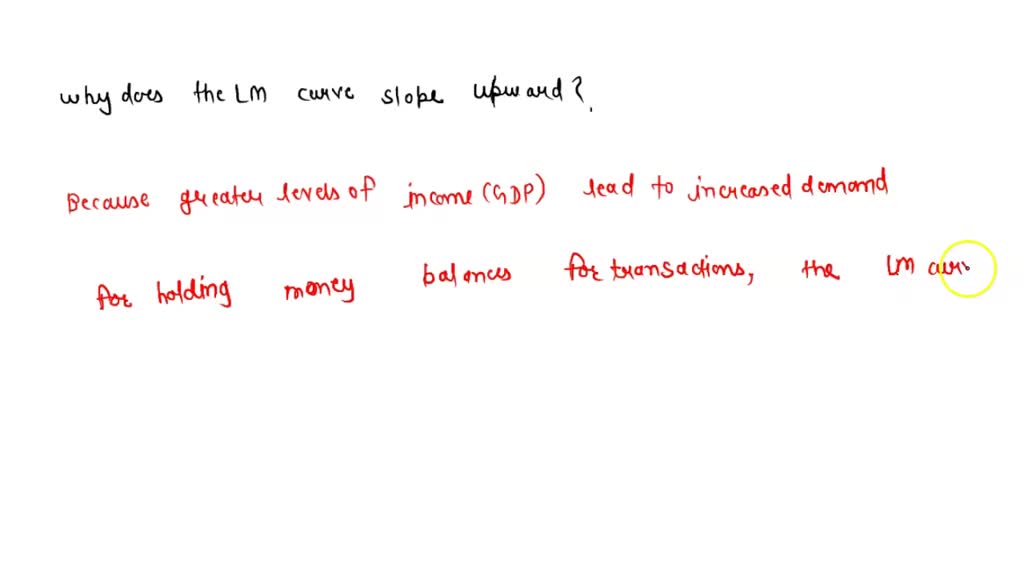 why does the LM curve slope upward?
Because greater levels of income (GDP) lead to increased demand
for holding money balances for transactions, the LM curv